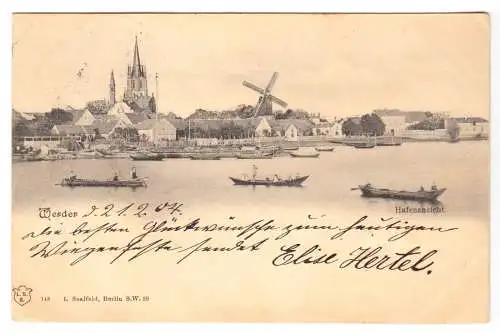 Hafenansicht
Werder d. 21.2.04.
Die besten Glückwünsche zum heutigen
Wiegenfeste sendet Elise Hertel.
148 L. Saalfeld, Berlin S.W. 29